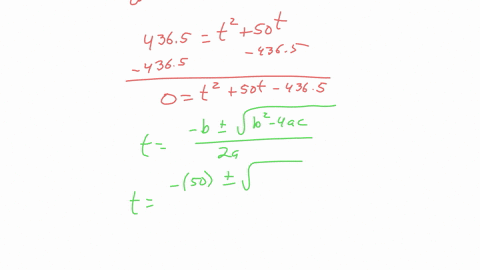 436.5 = t² + 50t
-436.5 -436.5
0 = t² + 50t - 436.5
t = -b ± √(b² - 4ac) / 2a
t = -(50) ± √